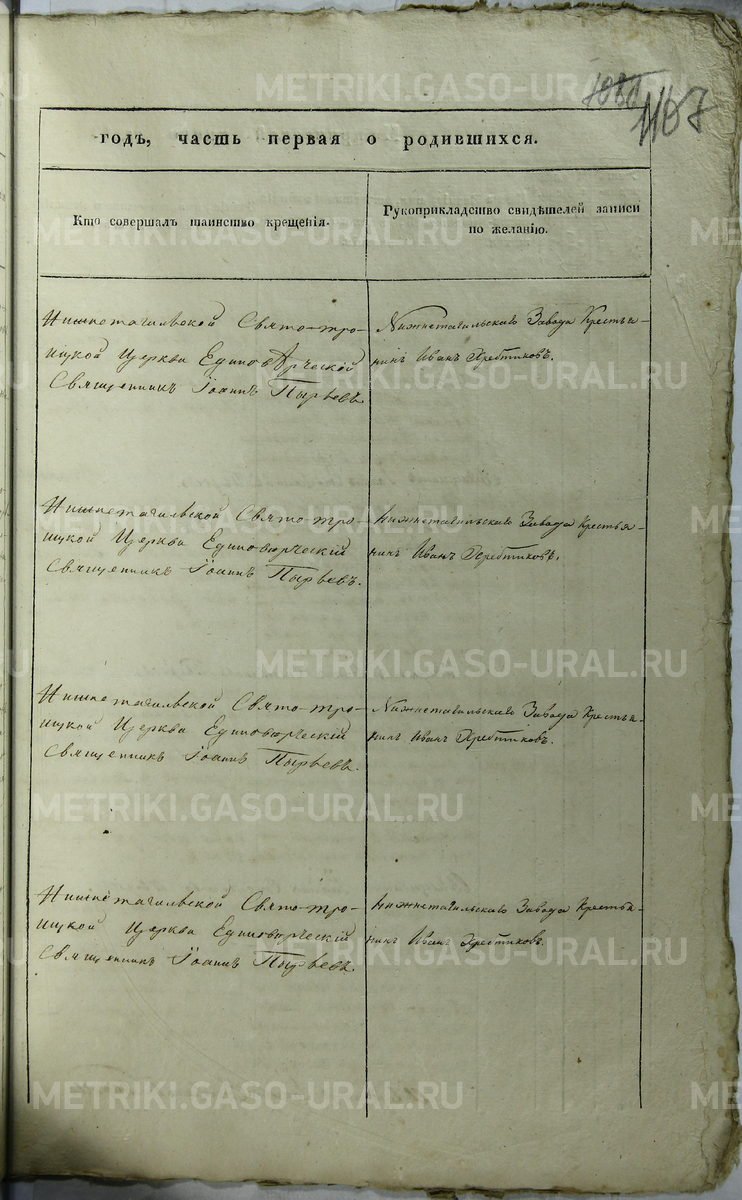 1167
годъ, часть первая о родившихся.
Кто совершалъ таинство крещенія.
Рукоприкладство свидѣтелей записи
по желанію.
Нижнетагильской Свято-тро-
ицкой Церкви Единовѣрческій
Священникъ Іоаннъ Пырьевъ.
Нижнетагильскаго Завода Крестья-
нинъ Иванъ Хребтиковъ.
Нижнетагильской Свято-тро-
ицкой Церкви Единовѣрческій
Священникъ Іоаннъ Пырьевъ.
Нижнетагильскаго Завода Крестья-
нинъ Иванъ Хребтиковъ.
Нижнетагильской Свято-тро-
ицкой Церкви Единовѣрческій
Священникъ Іоаннъ Пырьевъ.
Нижнетагильскаго Завода Крестья-
нинъ Иванъ Хребтиковъ.
Нижнетагильской Свято-тро-
ицкой Церкви Единовѣрческій
Священникъ Іоаннъ Пырьевъ.
Нижнетагильскаго Завода Крестья-
нинъ Иванъ Хребтиковъ.
METRIKI.GASO-URAL.RU